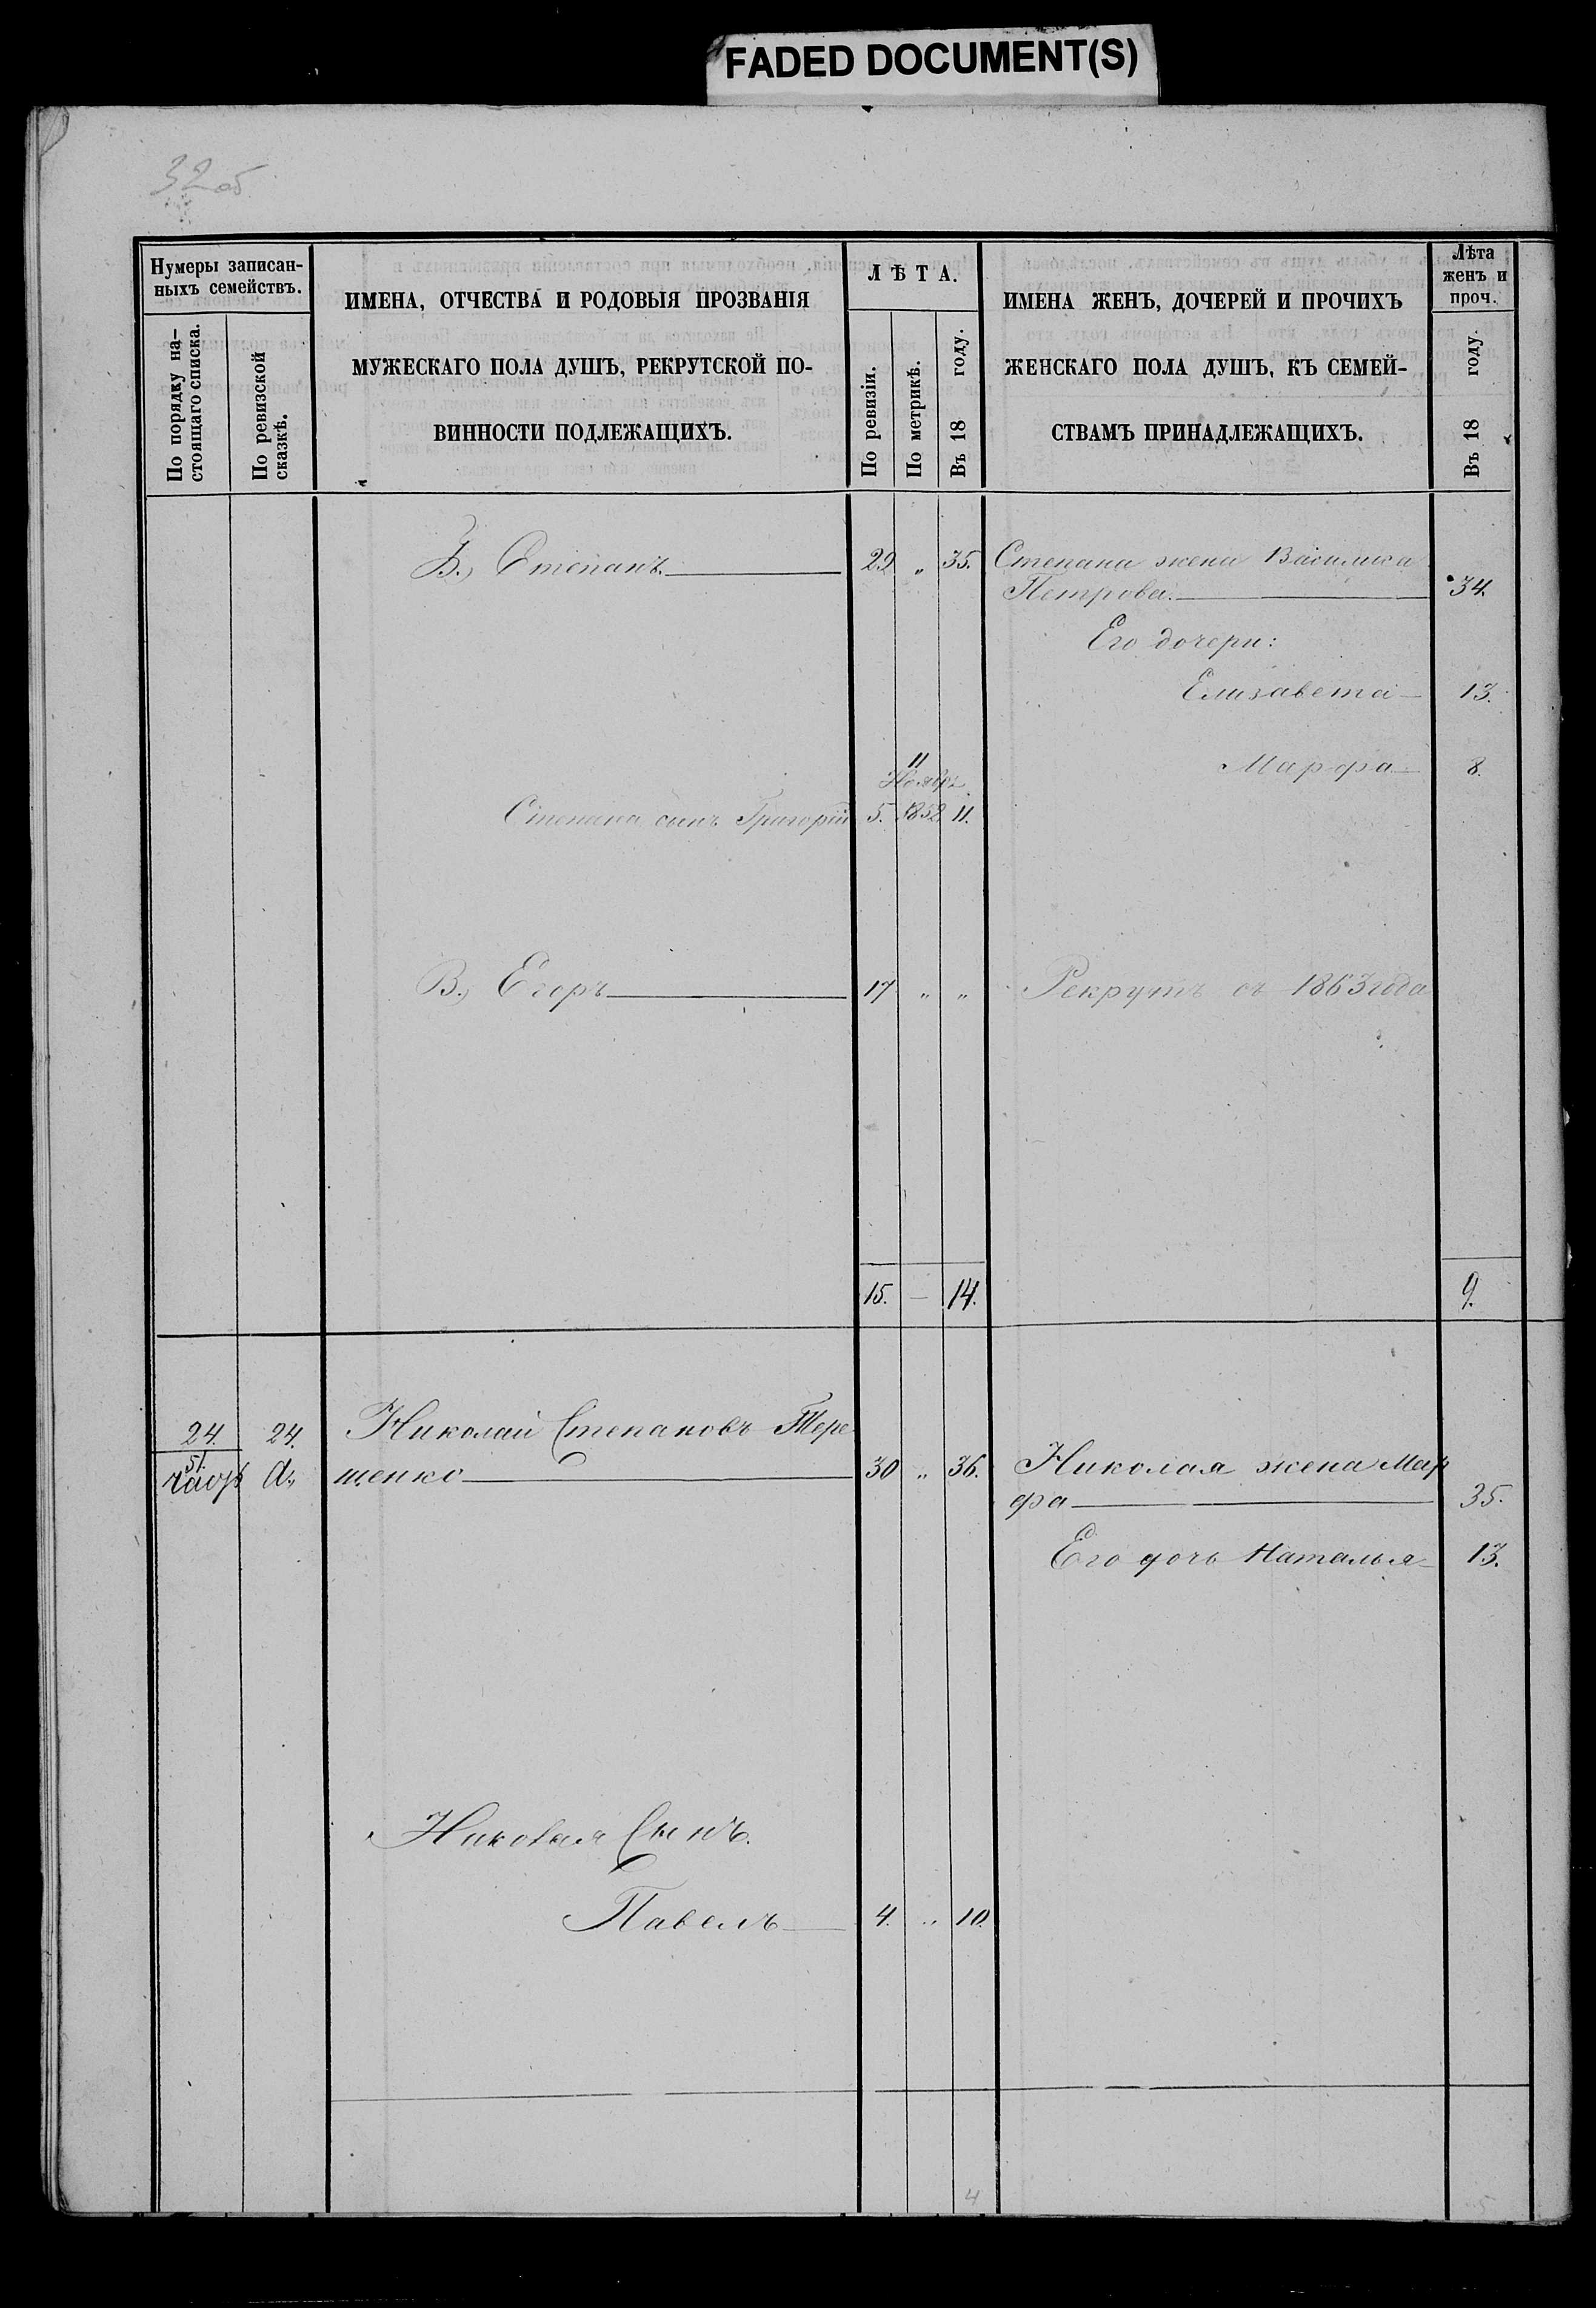 FADED DOCUMENT(S)
32 об
Нумеры записан-
ныхъ семействъ.
По порядку на-
стоящаго списка.
По ревизской
сказкѣ.
ИМЕНА, ОТЧЕСТВА И РОДОВЫЯ ПРОЗВАНІЯ
МУЖЕСКАГО ПОЛА ДУШЪ, РЕКРУТСКОЙ ПО-
ВИННОСТИ ПОДЛЕЖАЩИХЪ.
ЛѢТА.
По ревизіи.
По метрикѣ.
Въ 18 году.
ИМЕНА ЖЕНЪ, ДОЧЕРЕЙ И ПРОЧИХЪ
ЖЕНСКАГО ПОЛА ДУШЪ, КЪ СЕМЕЙ-
СТВАМЪ ПРИНАДЛЕЖАЩИХЪ.
Лѣта
женъ и
проч.
Въ 18 году.
Б., Степанъ 29 „ 35. Степана жена Василиса
Петрова. 34.
Его дочери:
Елизавета 13.
Марфа 8.
11
Ноябр
Степана сынъ Григорій 5. 1858 11.
В., Егоръ 17 „ „ Рекрутъ съ 1863 года
15. — 14. 9.
24. 24. Николай Степановъ Тере
51. а., щенко 30 „ 36. Николая жена Мар
фа 35.
Его дочь Наталья 13.
Николая Сынъ.
Павелъ 4. „ 10.
4 5